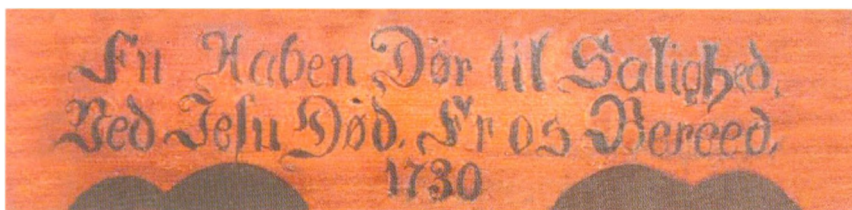 En Haben Dør til Salighed,
Ved Jesu Død. Er os Bereed.
1730